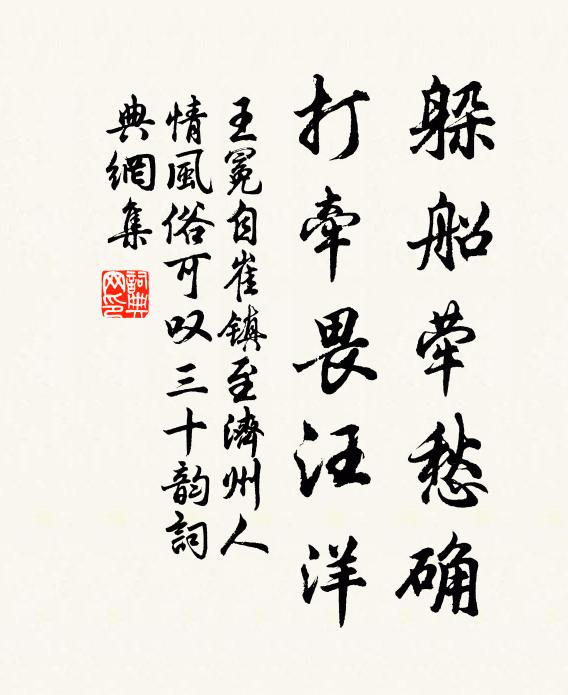 躲船牵愁确
打牵畏汪洋
王冕自崔镇至濟州人
情風俗可叹三十韵詞
典網集
詞典网印